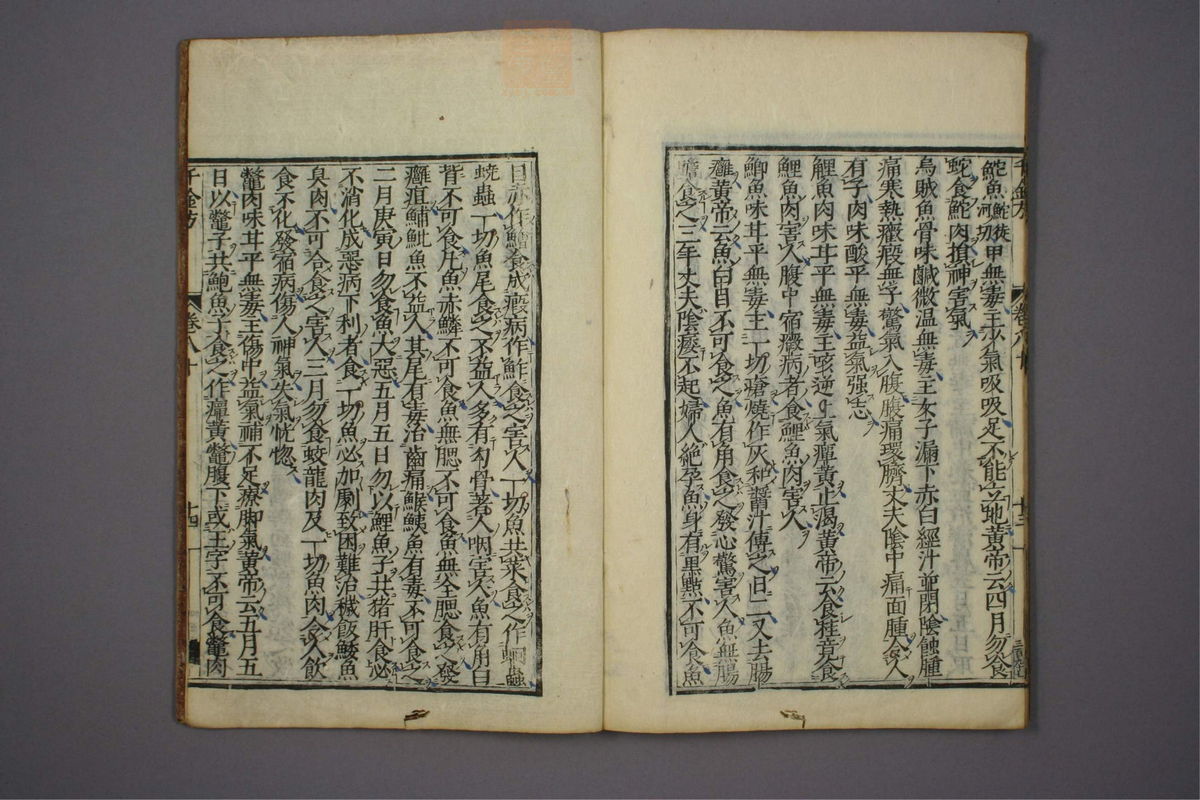 千金方 卷八十 廿三
鮀魚鮀徒河切甲無毒主少氣吸吸足不能立地黃帝云四月勿食
蛇食鮀肉損神害氣
烏賊魚骨味鹹微温無毒主女子漏下赤白經汁血閉陰蝕腫
痛寒熱癥瘕無子驚氣入腹腹痛環臍丈夫隂中痛而腫令人
有子肉味酸平無毒益氣强志
鯉魚肉味甘平無毒主欬逆上氣癉黃止渴黃帝云食桂竟食
鯉魚肉害人腹中宿癥病者食鯉魚肉害人
鯽魚味甘平無毒主一切瘡燒作灰和醬汁傅之日二又去腸
癰黃帝云魚白目不可食之魚有角食之發心驚害人魚無腸
膽食之三年丈夫陰痿不起婦人絶孕魚身有黑點不可食魚
目赤作鱠食成瘕病作鮓食之害人一切魚共菜食之作蛔蟲
蟯蟲一切魚尾食之不益人多有勾骨著人咽害人魚有角白
背不可食凡魚赤鱗不可食魚無腮不可食魚無全腮食之發
癰疽鯆魮魚不益人其尾有毒治齒痛鯸鮧魚有毒不可食之
二月庚寅日勿食魚大惡五月五日勿以鯉魚子共猪肝食必
不消化成惡病下利者食一切魚必加劇致困難治穢飯鯘魚
臭肉不可合食之害人三月勿食蛟龍肉及一切魚肉令人飲
食不化發宿病傷人神氣失氣恍惚
鼈肉味甘平無毒主傷中益氣補不足療脚氣黃帝云五月五
日以鼈子共鮑魚子食之作癉黃鼈腹下成王字不可食鼈肉
千金方 卷八十 廿四